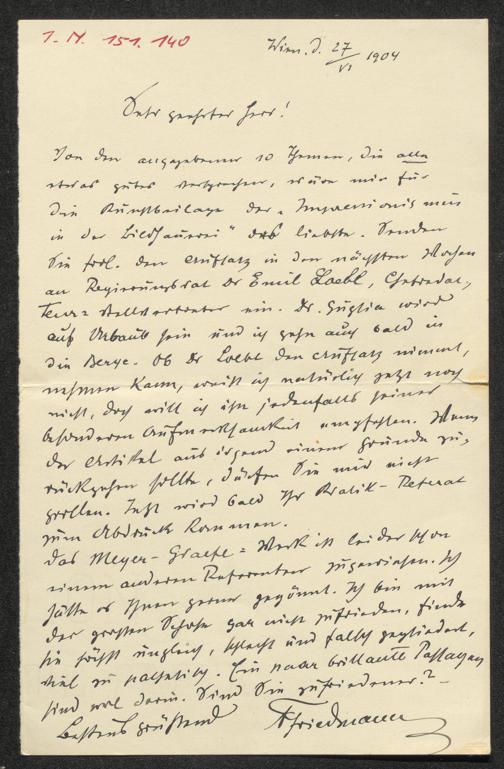 I. N. 151.140
Wien. d. 27/VI 1904
Sehr geehrter Herr!
Von den angegebenen 10 Themen, die alle
etwas gutes versprechen, wäre mir für
die Kunstbeilage der „Impressionismus
in der Bildhauerei“ das liebste. Senden
Sie frdl. den Aufsatz in den nächsten Wochen
an Regierungsrat Dr Emil Loebl, Chefredac,
teur=stellvertreter ein. Dr. Guglia wird
auf Urlaub sein und ich gehe auch bald in
die Berge. Ob Dr Loebl den Aufsatz nimmt,
nehmen kann, weiß ich natürlich jetzt noch
nicht, doch will ich ihn jedenfalls seiner
besonderen Aufmerksamkeit empfehlen. Wenn
der Artikel aus irgend einem Grunde zu,
rückgehen sollte, dürfen Sie mir nicht
grollen. Jetzt wird bald Ihr Kralik-Referat
zum Abdruck kommen.
Das Meyer-Graefe=Werk ist leider schon
einem anderen Referenten zugewiesen. Ich
hätte es Ihnen gerne gegönnt. Ich bin mit
der großen gar nicht zufrieden, finde
sie höchst ungleich, schlecht und falsch gegliedert,
viel zu pathetisch. Ein paar brillante Passagen
sind wol darin. Sind Sie zufriedener? –
Bestens grüßend
Friedmann